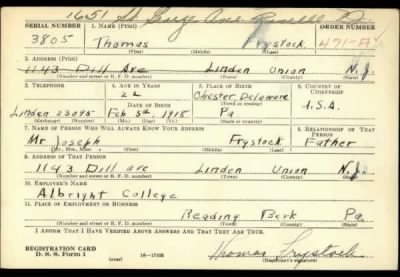 1651 St Georges Ave Roselle N.J.
SERIAL NUMBER 1. NAME (Print) ORDER NUMBER
3805 Thomas Frystock 471-A
(First) (Middle) (Last)
2. ADDRESS (Print)
1143 Dill Ave Linden Union N.J.
(Number and street or R. F. D. number) (Town) (County) (State)
3. TELEPHONE 4. AGE IN YEARS 5. PLACE OF BIRTH 6. COUNTRY OF CITIZENSHIP
22 Chester Delaware
DATE OF BIRTH (Town or county)
Linden 23095 Feb 5th 1918 Pa U.S.A.
(Exchange) (Number) (Mo.) (Day) (Yr.) (State or country)
7. NAME OF PERSON WHO WILL ALWAYS KNOW YOUR ADDRESS 8. RELATIONSHIP OF THAT PERSON
Mr Joseph Frystock Father
(Mr., Mrs., Miss) (First) (Middle) (Last)
9. ADDRESS OF THAT PERSON
1143 Dill ave Linden Union N.J.
(Number and street or R. F. D. number) (Town) (County) (State)
10. EMPLOYER'S NAME
Albright College
11. PLACE OF EMPLOYMENT OR BUSINESS
Reading Berk Pa
(Number and street or R. F. D. number) (Town) (County) (State)
I AFFIRM THAT I HAVE VERIFIED ABOVE ANSWERS AND THAT THEY ARE TRUE.
REGISTRATION CARD
D. S. S. Form 1 (over) 16—17105 Thomas Frystock
(Registrant's signature)